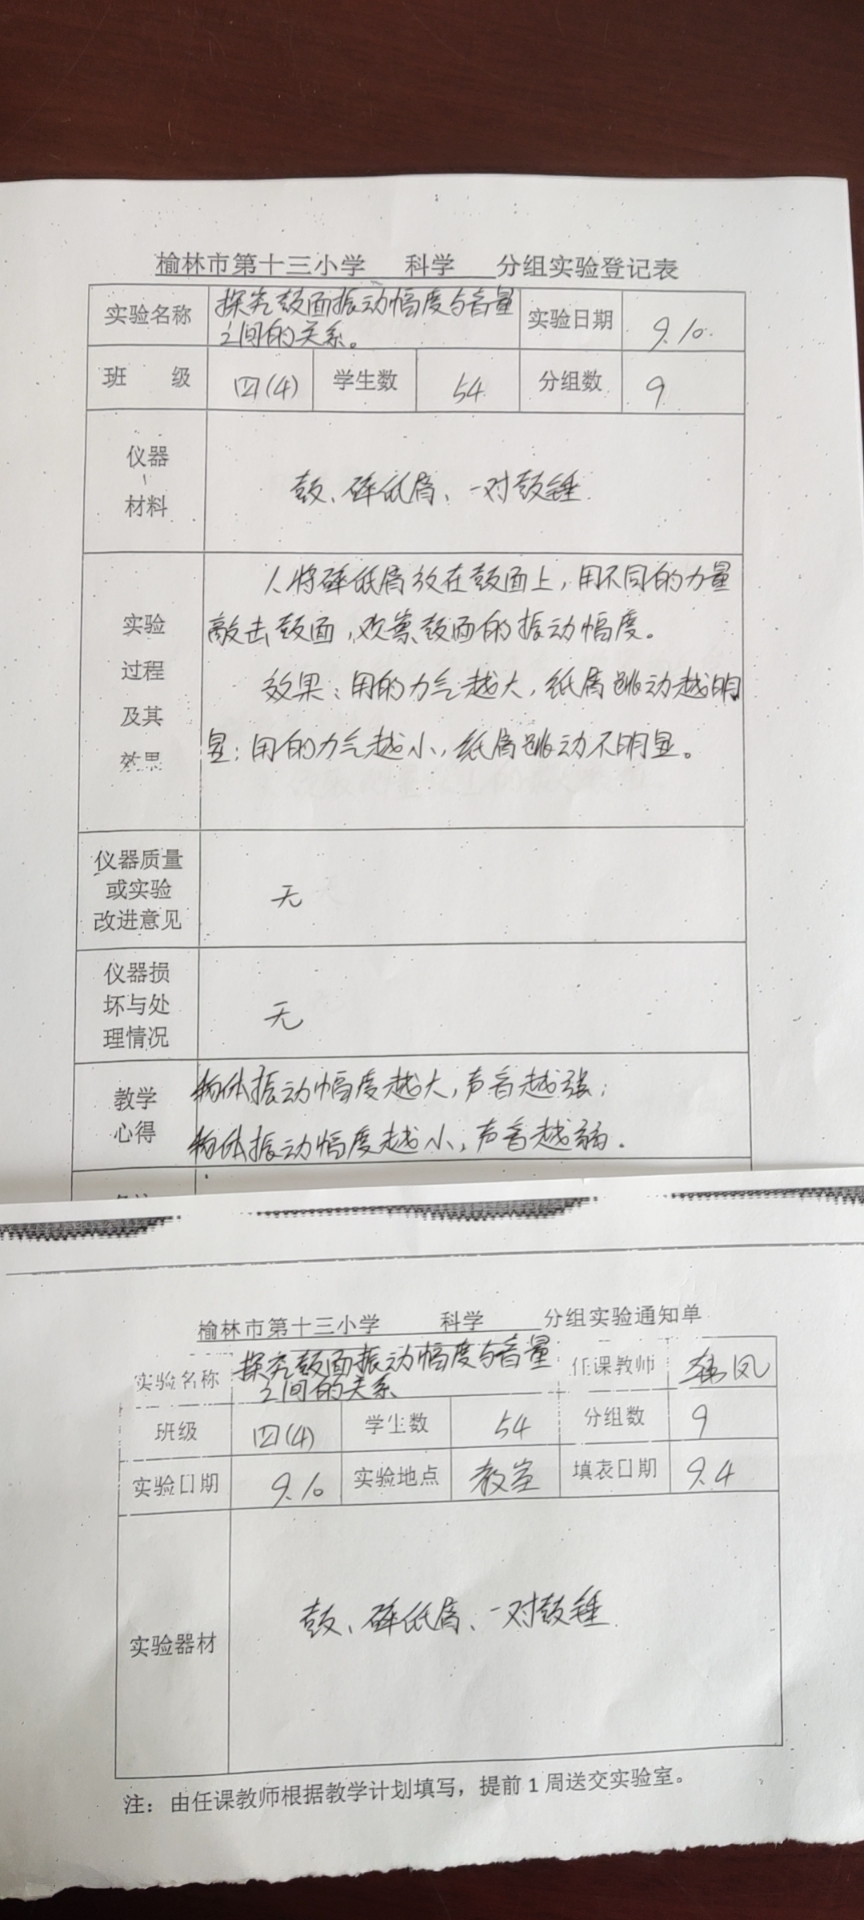 榆林市第十三小学 科学 分组实验登记表
实验名称 探究鼓面振动幅度与音量之间的关系。 实验日期 9.10.
班 级 四(4) 学生数 54 分组数 9
仪器、材料 鼓、碎纸屑、一对鼓锤
实验过程及其效果
1、将碎纸屑放在鼓面上，用不同的力量
敲击鼓面，观察鼓面的振动幅度。
效果：用的力气越大，纸屑跳动越明
显；用的力气越小，纸屑跳动不明显。
仪器质量或实验改进意见 无
仪器损坏与处理情况 无
教学心得
物体振动幅度越大，声音越强；
物体振动幅度越小，声音越弱.
榆林市第十三小学 科学 分组实验通知单
实验名称 探究鼓面振动幅度与音量之间的关系 任课教师 韩凤
班级 四(4) 学生数 54 分组数 9
实验日期 9.10 实验地点 教室 填表日期 9.4
实验器材 鼓、碎纸屑、一对鼓锤
注：由任课教师根据教学计划填写，提前1周送交实验室。